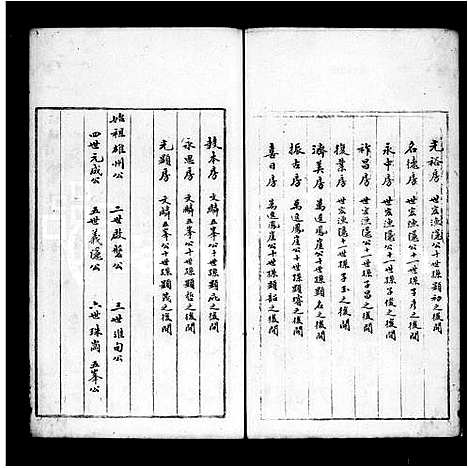 光裕房 世宏漁隱公十世孫顯初之後閗
名德房 世宏漁隱公十一世孫子彥之後閗
永中房 世宏漁隱公十一世孫子俊之後閗
祚昌房 世宏漁隱公十一世孫子昌之後閗
復業房 世宏漁隱公十一世孫子玉之後閗
濟美房 萬追鳳崖公十世孫顯名之後閗
振古房 萬追鳳崖公十世孫顯審之後閗
喜日房 萬追鳳崖公十世孫顯韜之後閗
敦本房 文麟五峯公十世孫顯 之後閗
永思房 文麟五峯公十世孫顯哲之後閗
光顯房 文麟五峯公十世孫顯茂之後閗
始祖雄州公 二世啟磬公 三世淮旬公
四世元成公 五世義遷公 六世珠崗 五峯公